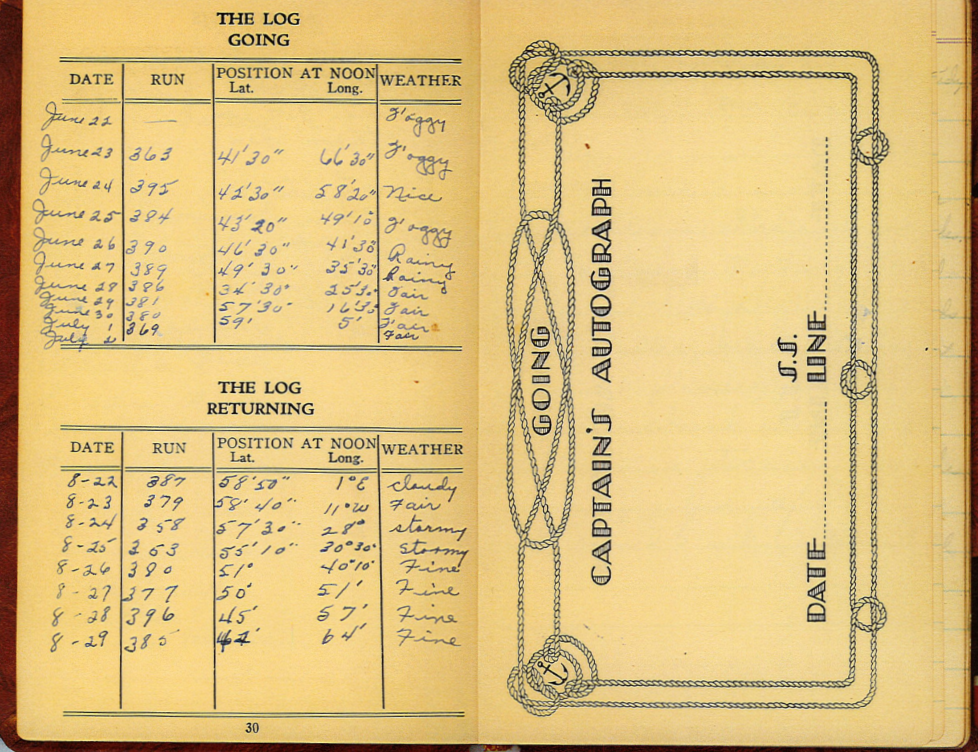 THE LOG
GOING
DATE RUN POSITION AT NOON WEATHER
Lat. Long.
June 22 — Foggy
June 23 363 41'30" 66'30" Foggy
June 24 395 42'30" 58'20" Nice
June 25 384 43'20" 49'10" Foggy
June 26 390 46'30" 41'30" Rainy
June 27 389 49'30" 35'30" Rainy
June 28 386 34'30" 25'30" Fair
June 29 381 57'30" 16'35 Fair
June 30 380 59' 5' Fair
July 1 369 Fair
July
THE LOG
RETURNING
DATE RUN POSITION AT NOON WEATHER
Lat. Long.
8-22 387 58'50" 1°E cloudy
8-23 379 58'40" 11°W Fair
8-24 358 57'30" 28° stormy
8-25 353 55'10" 30°30' Stormy
8-26 380 51° 40°10' Fine
8-27 377 50' 51' Fine
8-28 396 45' 57' Fine
8-29 385 64' Fine
30
GOING
CAPTAIN'S AUTOGRAPH
S.S.
DATE LINE